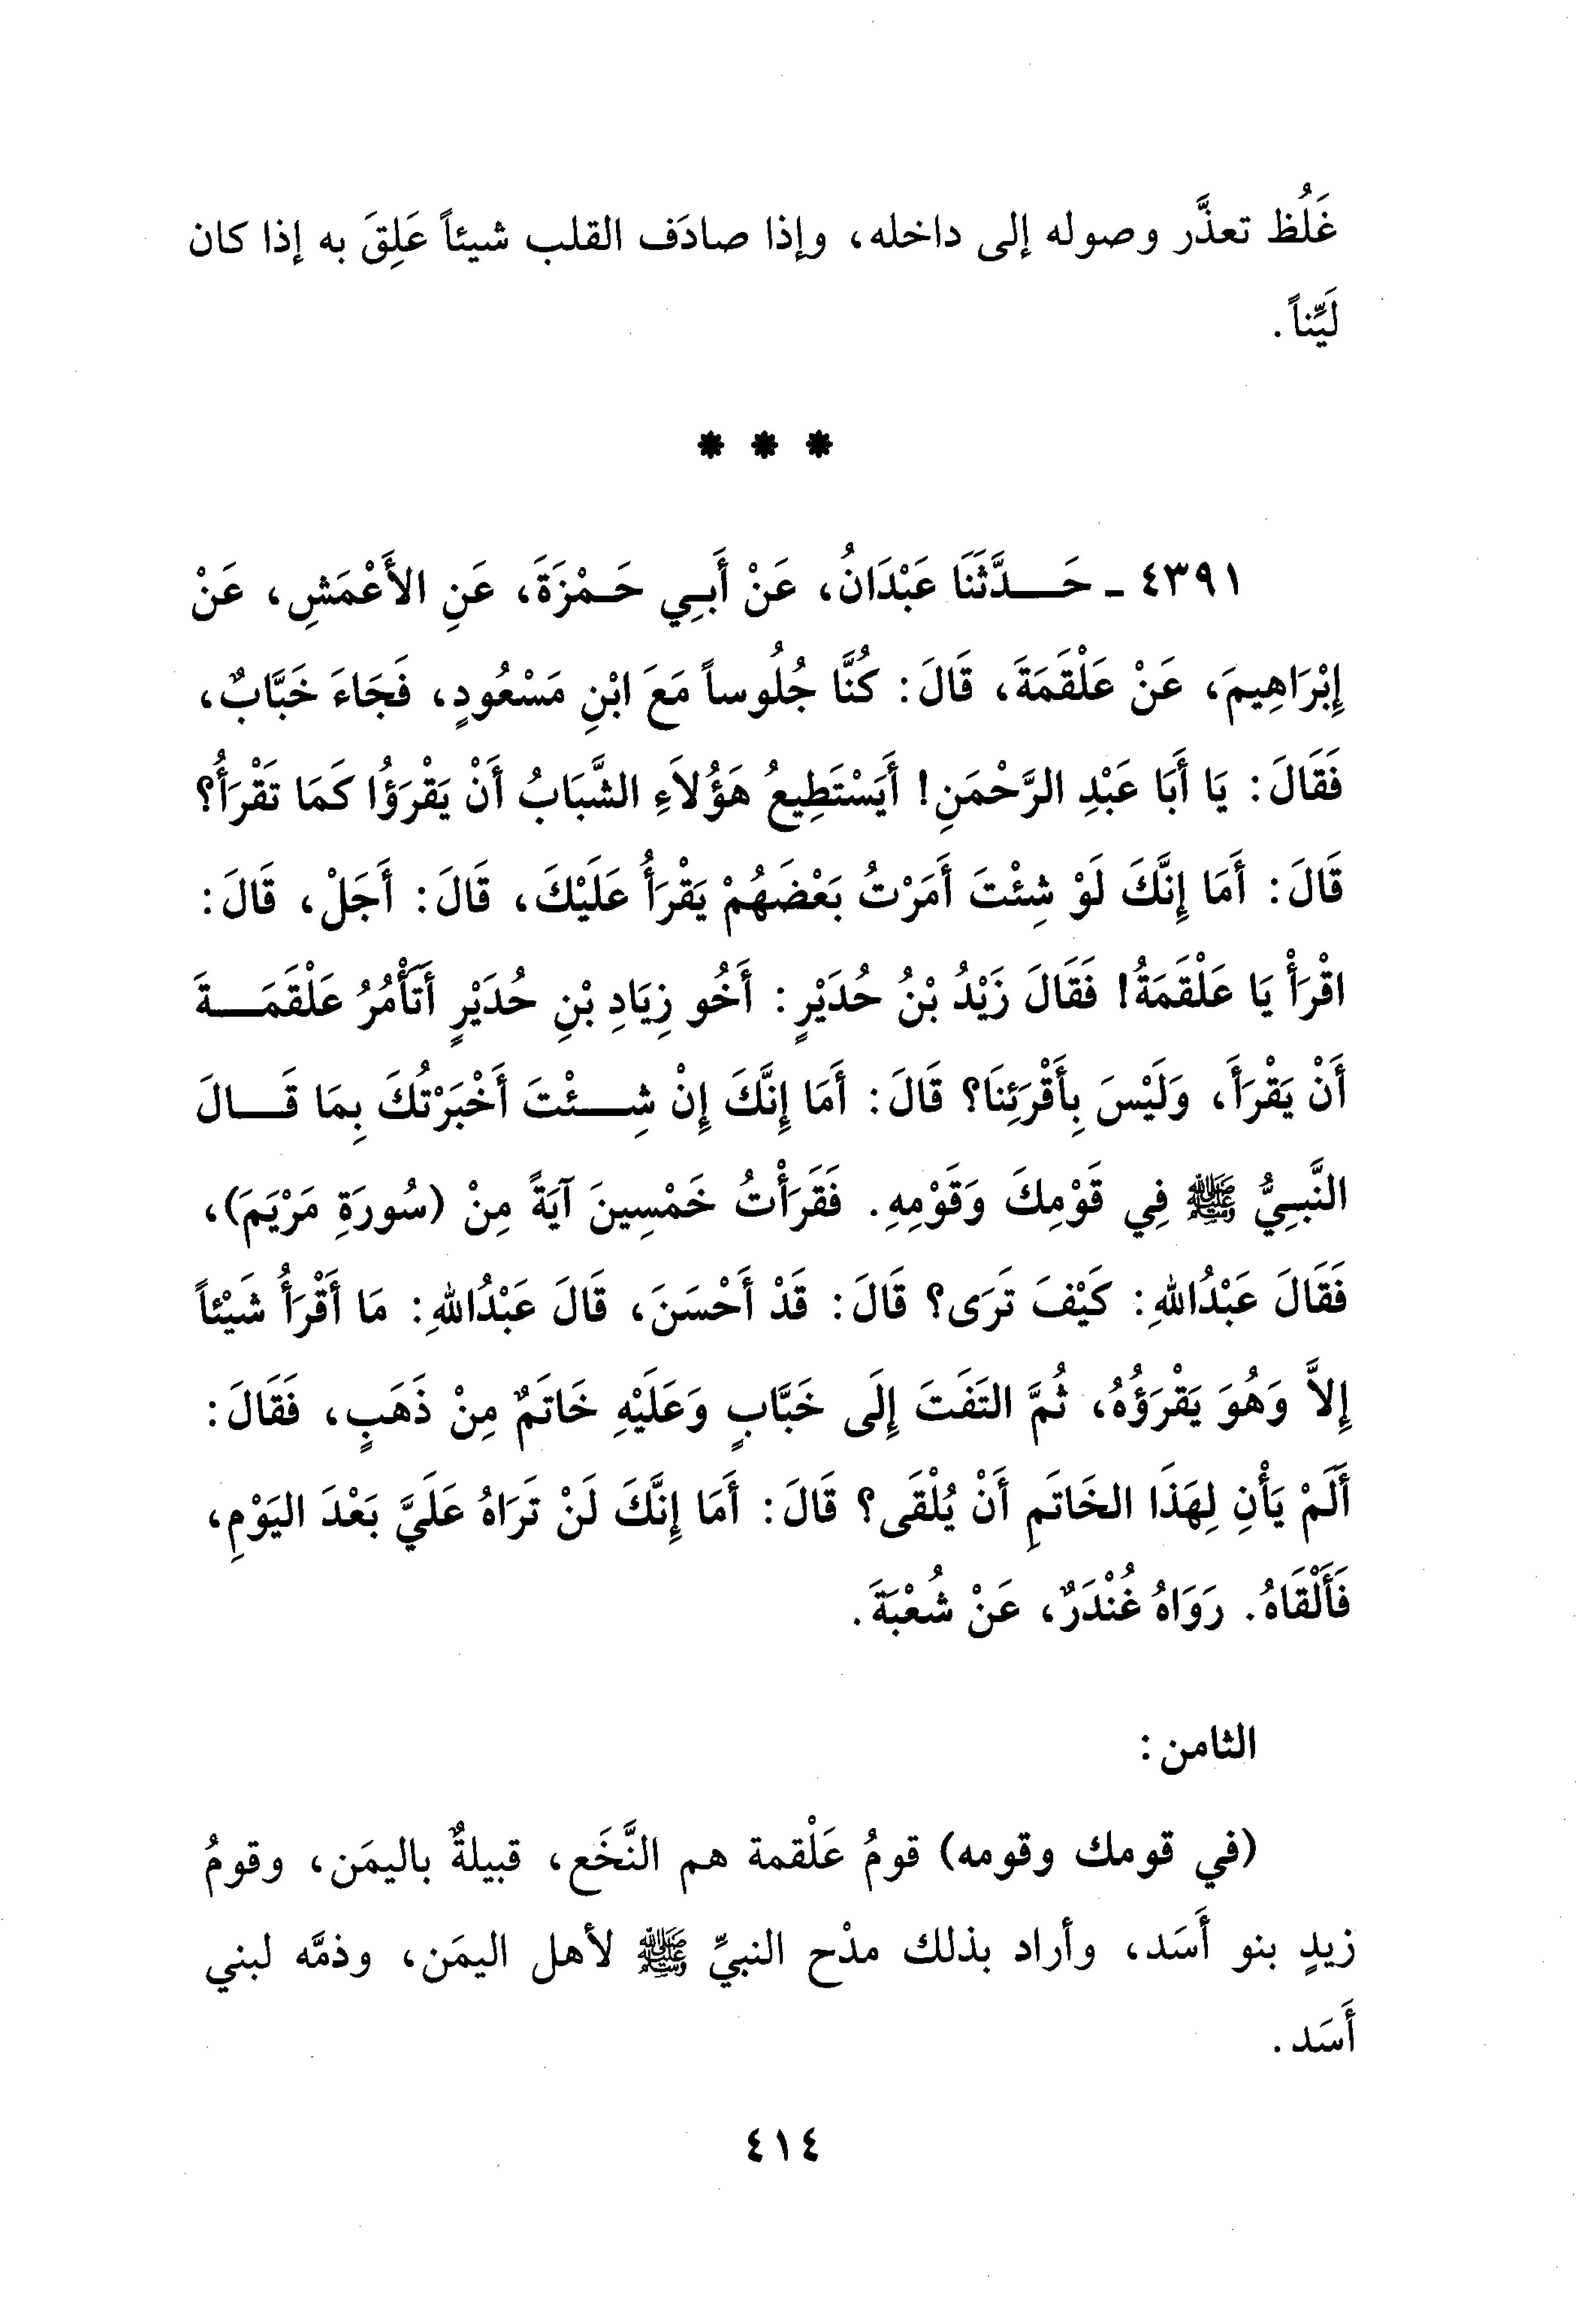 غَلُظ تعذَّر وصوله إلى داخله، وإذا صادَف القلب شيئاً عَلِقَ به إذا كان
لَيِّناً.
* * *
٤٣٩١ ـ حَـــدَّثَنَا عَبْدَانُ، عَنْ أَبِـي حَـمْزَةَ، عَنِ الأَعْمَشِ، عَنْ
إِبْرَاهِيمَ، عَنْ عَلْقَمَةَ، قَالَ: كُنَّا جُلُوساً مَعَ ابْنِ مَسْعُودٍ، فَجَاءَ خَبَّابٌ،
فَقَالَ: يَا أَبَا عَبْدِ الرَّحْمَنِ! أَيَسْتَطِيعُ هَؤُلاَءِ الشَّبَابُ أَنْ يَقْرَؤُا كَمَا تَقْرَأُ؟
قَالَ: أَمَا إِنَّكَ لَوْ شِئْتَ أَمَرْتُ بَعْضَهُمْ يَقْرَأُ عَلَيْكَ، قَالَ: أَجَلْ، قَالَ:
اقْرَأْ يَا عَلْقَمَةُ! فَقَالَ زَيْدُ بْنُ حُدَيْرٍ: أَخُو زِيَادِ بْنِ حُدَيْرٍ أَتَأْمُرُ عَلْقَمَـــةَ
أَنْ يَقْرَأَ، وَلَيْسَ بِأَقْرَئِنَا؟ قَالَ: أَمَا إِنَّكَ إِنْ شِـــئْتَ أَخْبَرْتُكَ بِمَا قَـــالَ
النَّبِيُّ ﷺ فِي قَوْمِكَ وَقَوْمِهِ. فَقَرَأْتُ خَمْسِينَ آيَةً مِنْ (سُورَةِ مَرْيَمَ)،
فَقَالَ عَبْدُاللهِ: كَيْفَ تَرَى؟ قَالَ: قَدْ أَحْسَنَ، قَالَ عَبْدُاللهِ: مَا أَقْرَأُ شَيْئاً
إِلاَّ وَهُوَ يَقْرَؤُهُ، ثُمَّ التَفَتَ إِلَى خَبَّابٍ وَعَلَيْهِ خَاتَمٌ مِنْ ذَهَبٍ، فَقَالَ:
أَلَمْ يَأْنِ لِهَذَا الخَاتَمِ أَنْ يُلْقَى؟ قَالَ: أَمَا إِنَّكَ لَنْ تَرَاهُ عَلَيَّ بَعْدَ اليَوْمِ،
فَأَلْقَاهُ. رَوَاهُ غُنْدَرٌ، عَنْ شُعْبَةَ.
الثامن:
(في قومك وقومه) قومُ عَلْقمة هم النَّخَع، قبيلةٌ باليمَن، وقومُ
زيدٍ بنو أَسَد، وأراد بذلك مدْح النبيِّ ﷺ لأهل اليمَن، وذمَّه لبني
أَسَد.
٤١٤